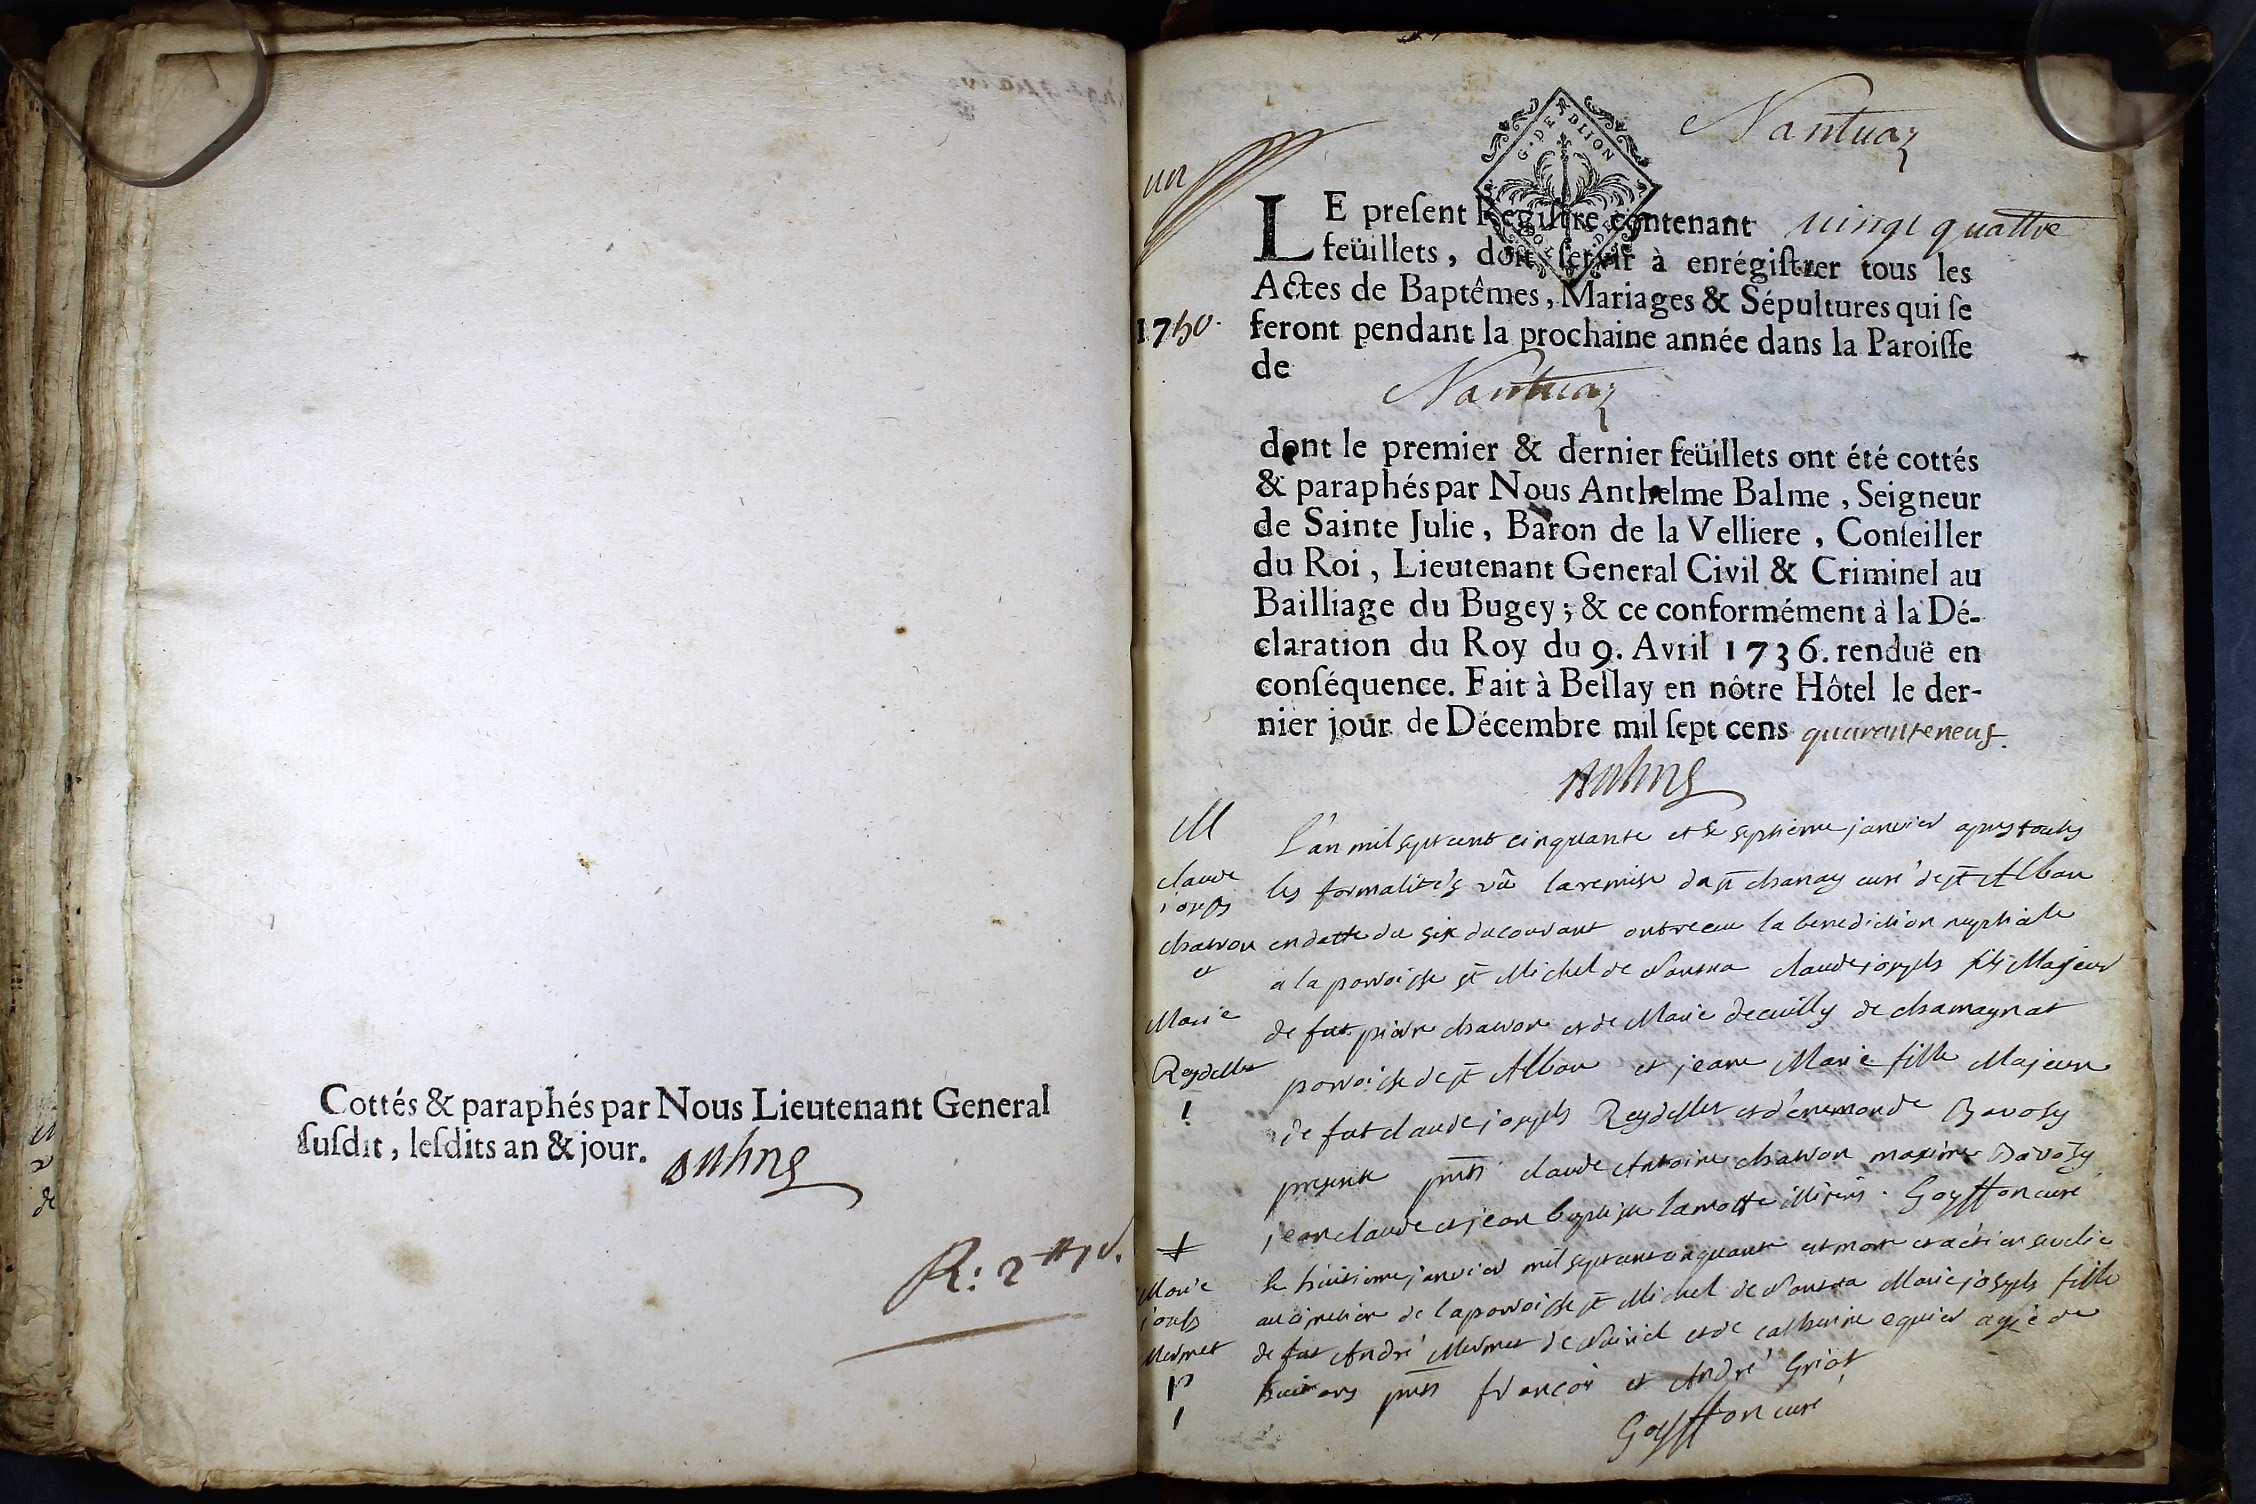 Cottés & paraphés par Nous Lieutenant General
susdit, lesdits an & jour.
R: 2
Nantua
un
G. DE DIION
LE preſent Regiſtre contenant vingt quattre
feüillets, doit ſervir à enrégiſtrer tous les
Actes de Baptêmes, Mariages & Sépultures qui ſe
1750.
feront pendant la prochaine année dans la Paroiſſe
de
Nantua
dont le premier & dernier feüillets ont été cottés
& paraphés par Nous Anthelme Balme, Seigneur
de Sainte Julie, Baron de la Velliere, Conſeiller
du Roi, Lieutenant General Civil & Criminel au
Bailliage du Bugey; & ce conformément à la Dé-
claration du Roy du 9. Avril 1736. renduë en
conſéquence. Fait à Bellay en nôtre Hôtel le der-
nier jour de Décembre mil ſept cens quaranteneuf.
M
claude
joseph
chavron
et
Marie
Reydellet
1
L'an mil sept cent cinquante et le septieme janvier apres toutes
les formalités vû la remise de chanay curé de st Alban
en datte du six du courant ont receu la benediction nuptiale
a la parroisse st Michel de Nantua claude joseph fils Majeur
de fut pierre chavron et de Marie decuilly de chamagnat
parroisse de st Alban et jeane Marie fille Majeure
de fut claude joseph Reydellet et d'enemonde Bavosy
presente pnts claude Antoine chavron maxime Davosy
jean claude et jean baptiste lamotte Goyffon curé
†
Marie
joseph
Mermet
1
le huitieme janvier mil sept cent cinquante est morte et a été ensevelie
au cimetiere de la parroisse st Michel de Nantua Marie joseph fille
de fut André Mermet de et de catherine equier agée de
huit ans pnts françois et André Griot
Goyffon curé